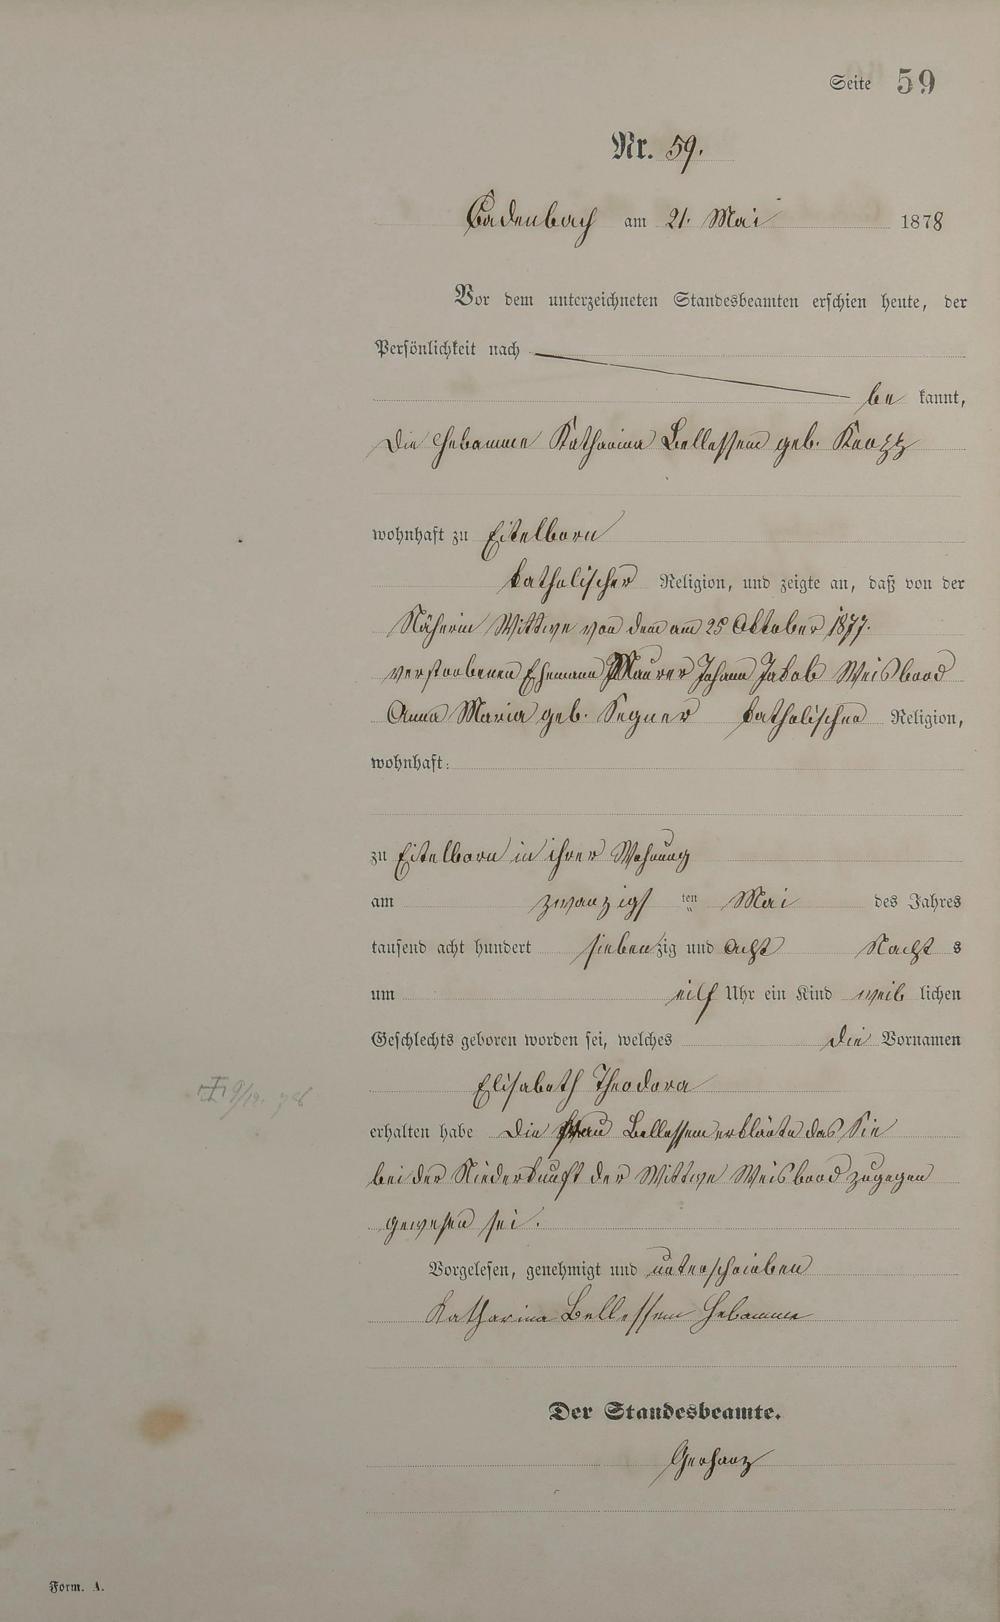 Seite 59
Nr. 59.
Cadenbach am 21. Mai 1878
Vor dem unterzeichneten Standesbeamten erschien heute, der
Persönlichkeit nach
be kannt,
die Hebamme Katharina Bellessem geb. Knopp
wohnhaft zu Eitelborn
katholischer Religion, und zeigte an, daß von der
Näherin Wittwe von dem am 25 Oktober 1877.
verstorbenen Ehemann Maurer Johann Jakob Weisbrod
Anna Maria geb. Segner katholischer Religion,
wohnhaft:
zu Eitelborn in ihrer Wohnung
am zwanzigs ten Mai des Jahres
tausend acht hundert siebenzig und acht Nacht s
um eilf Uhr ein Kind weib lichen
Geschlechts geboren worden sei, welches die Vornamen
Elisabeth Theodora
erhalten habe Die Frau Bellessem erklärte das Sie
bei der Niederkunft der Wittwe Weisbrod zugegen
gewesen sei.
Vorgelesen, genehmigt und unterschrieben
Katharina Bellessem Hebamme
Der Standesbeamte.
Gerharz
Form. A.